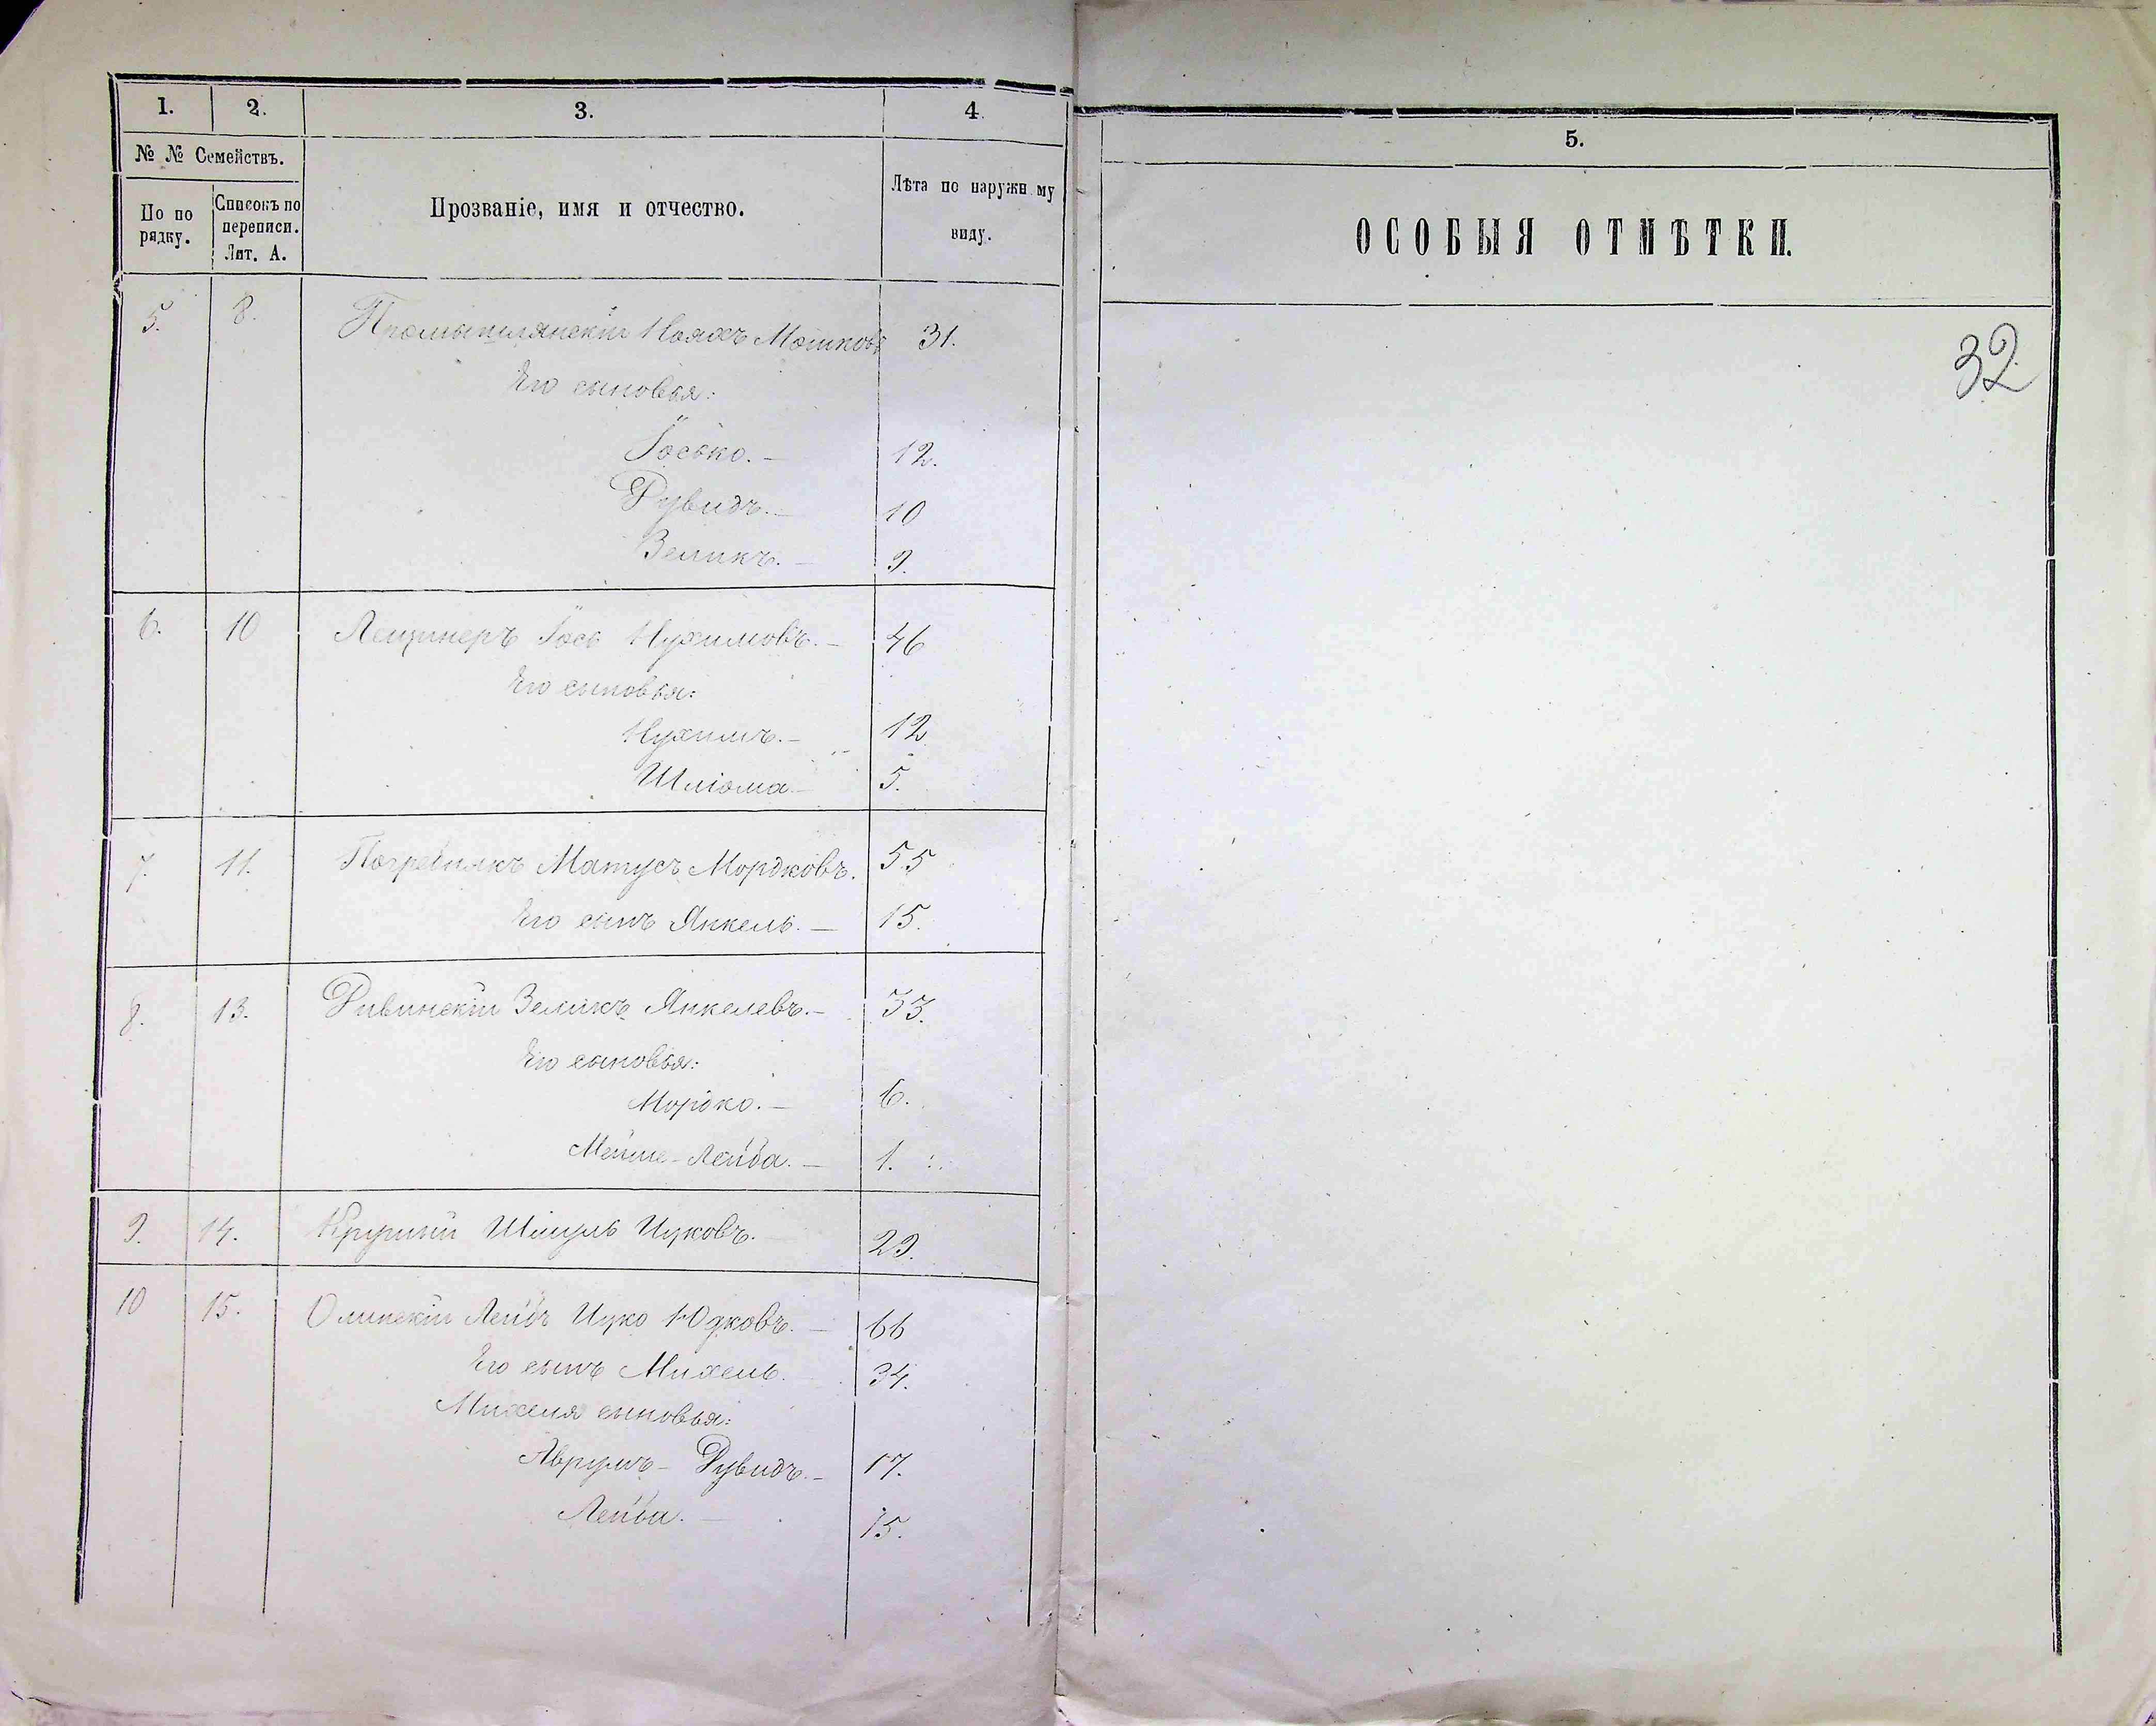 1. 2. 3. 4.
№ № Семействъ.
По по рядку. Списокъ по переписи. Лит. А. Прозваніе, имя и отчество. Лѣта по наружн му виду.
5. 8. Промышлянскій Нояхъ Мошковъ 31.
Его сыновья:
Іосько. 12.
Дувидъ. 10
Зеликъ. 9.
6. 10 Лещинеръ Іось Нухимовъ. 46
Его сыновья:
Нухимъ. 12
Шліома 5.
7. 11. Погребнякъ Матусъ Мордковъ. 55
Его сынъ Янкель. 15.
8. 13. Ривинскій Зеликъ Янкелевъ. 33.
Его сыновья:
Мордко. 6.
Мейше-Лейба. 1.
9. 14. Шмуль Ицковъ. 29.
10 15. Олинскій Лейбъ Ицко Юдковъ. 66
Его сынъ Михель. 34.
Михеля сыновья:
Аврумъ-Дувидъ. 17.
Лейба. 15.
5.
ОСОБЫЯ ОТМѢТКИ.
32